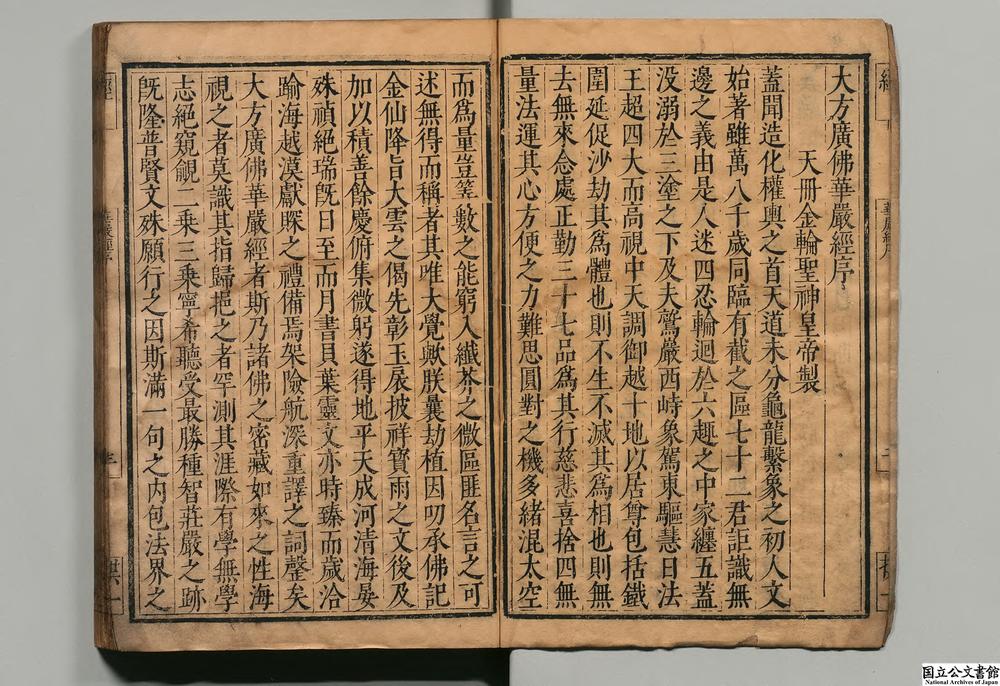 大方廣佛華嚴經序
天冊金輪聖神皇帝製
蓋聞造化權輿之首天道未分龜龍繫象之初人文
始著雖萬八千歲同臨有截之區七十二君詎識無
邊之義由是人迷四忍輪迴於六趣之中家纏五蓋
没溺於三塗之下及夫鷲巖西峙象駕東驅慧日法
王超四大而高視中天調御越十地以居尊包括鐵
圍延促沙劫其為體也則不生不滅其為相也則無
去無來念處正勤三十七品為其行慈悲喜捨四無
量法運其心方便之力難思圓對之機多緒混太空
而為量豈筭數之能窮入纖芥之微區匪名言之可
述無得而稱者其唯大覺歟朕曩劫植因叨承佛記
金仙降旨大雲之偈先彰玉扆披祥寳雨之文後及
加以積善餘慶俯集微躬遂得地平天成河清海晏
殊禎絶瑞旣日至而月書貝葉靈文亦時臻而歲洽
踰海越漠獻賝之禮備焉架險航深重譯之詞罄矣
大方廣佛華嚴經者斯乃諸佛之密藏如來之性海
視之者莫識其指歸挹之者罕測其涯際有學無學
志絶窺覦二乘三乘寧希聽受最勝種智莊嚴之跡
旣隆普賢文殊願行之因斯滿一句之内包法界之
国立公文書館
National Archives of Japan